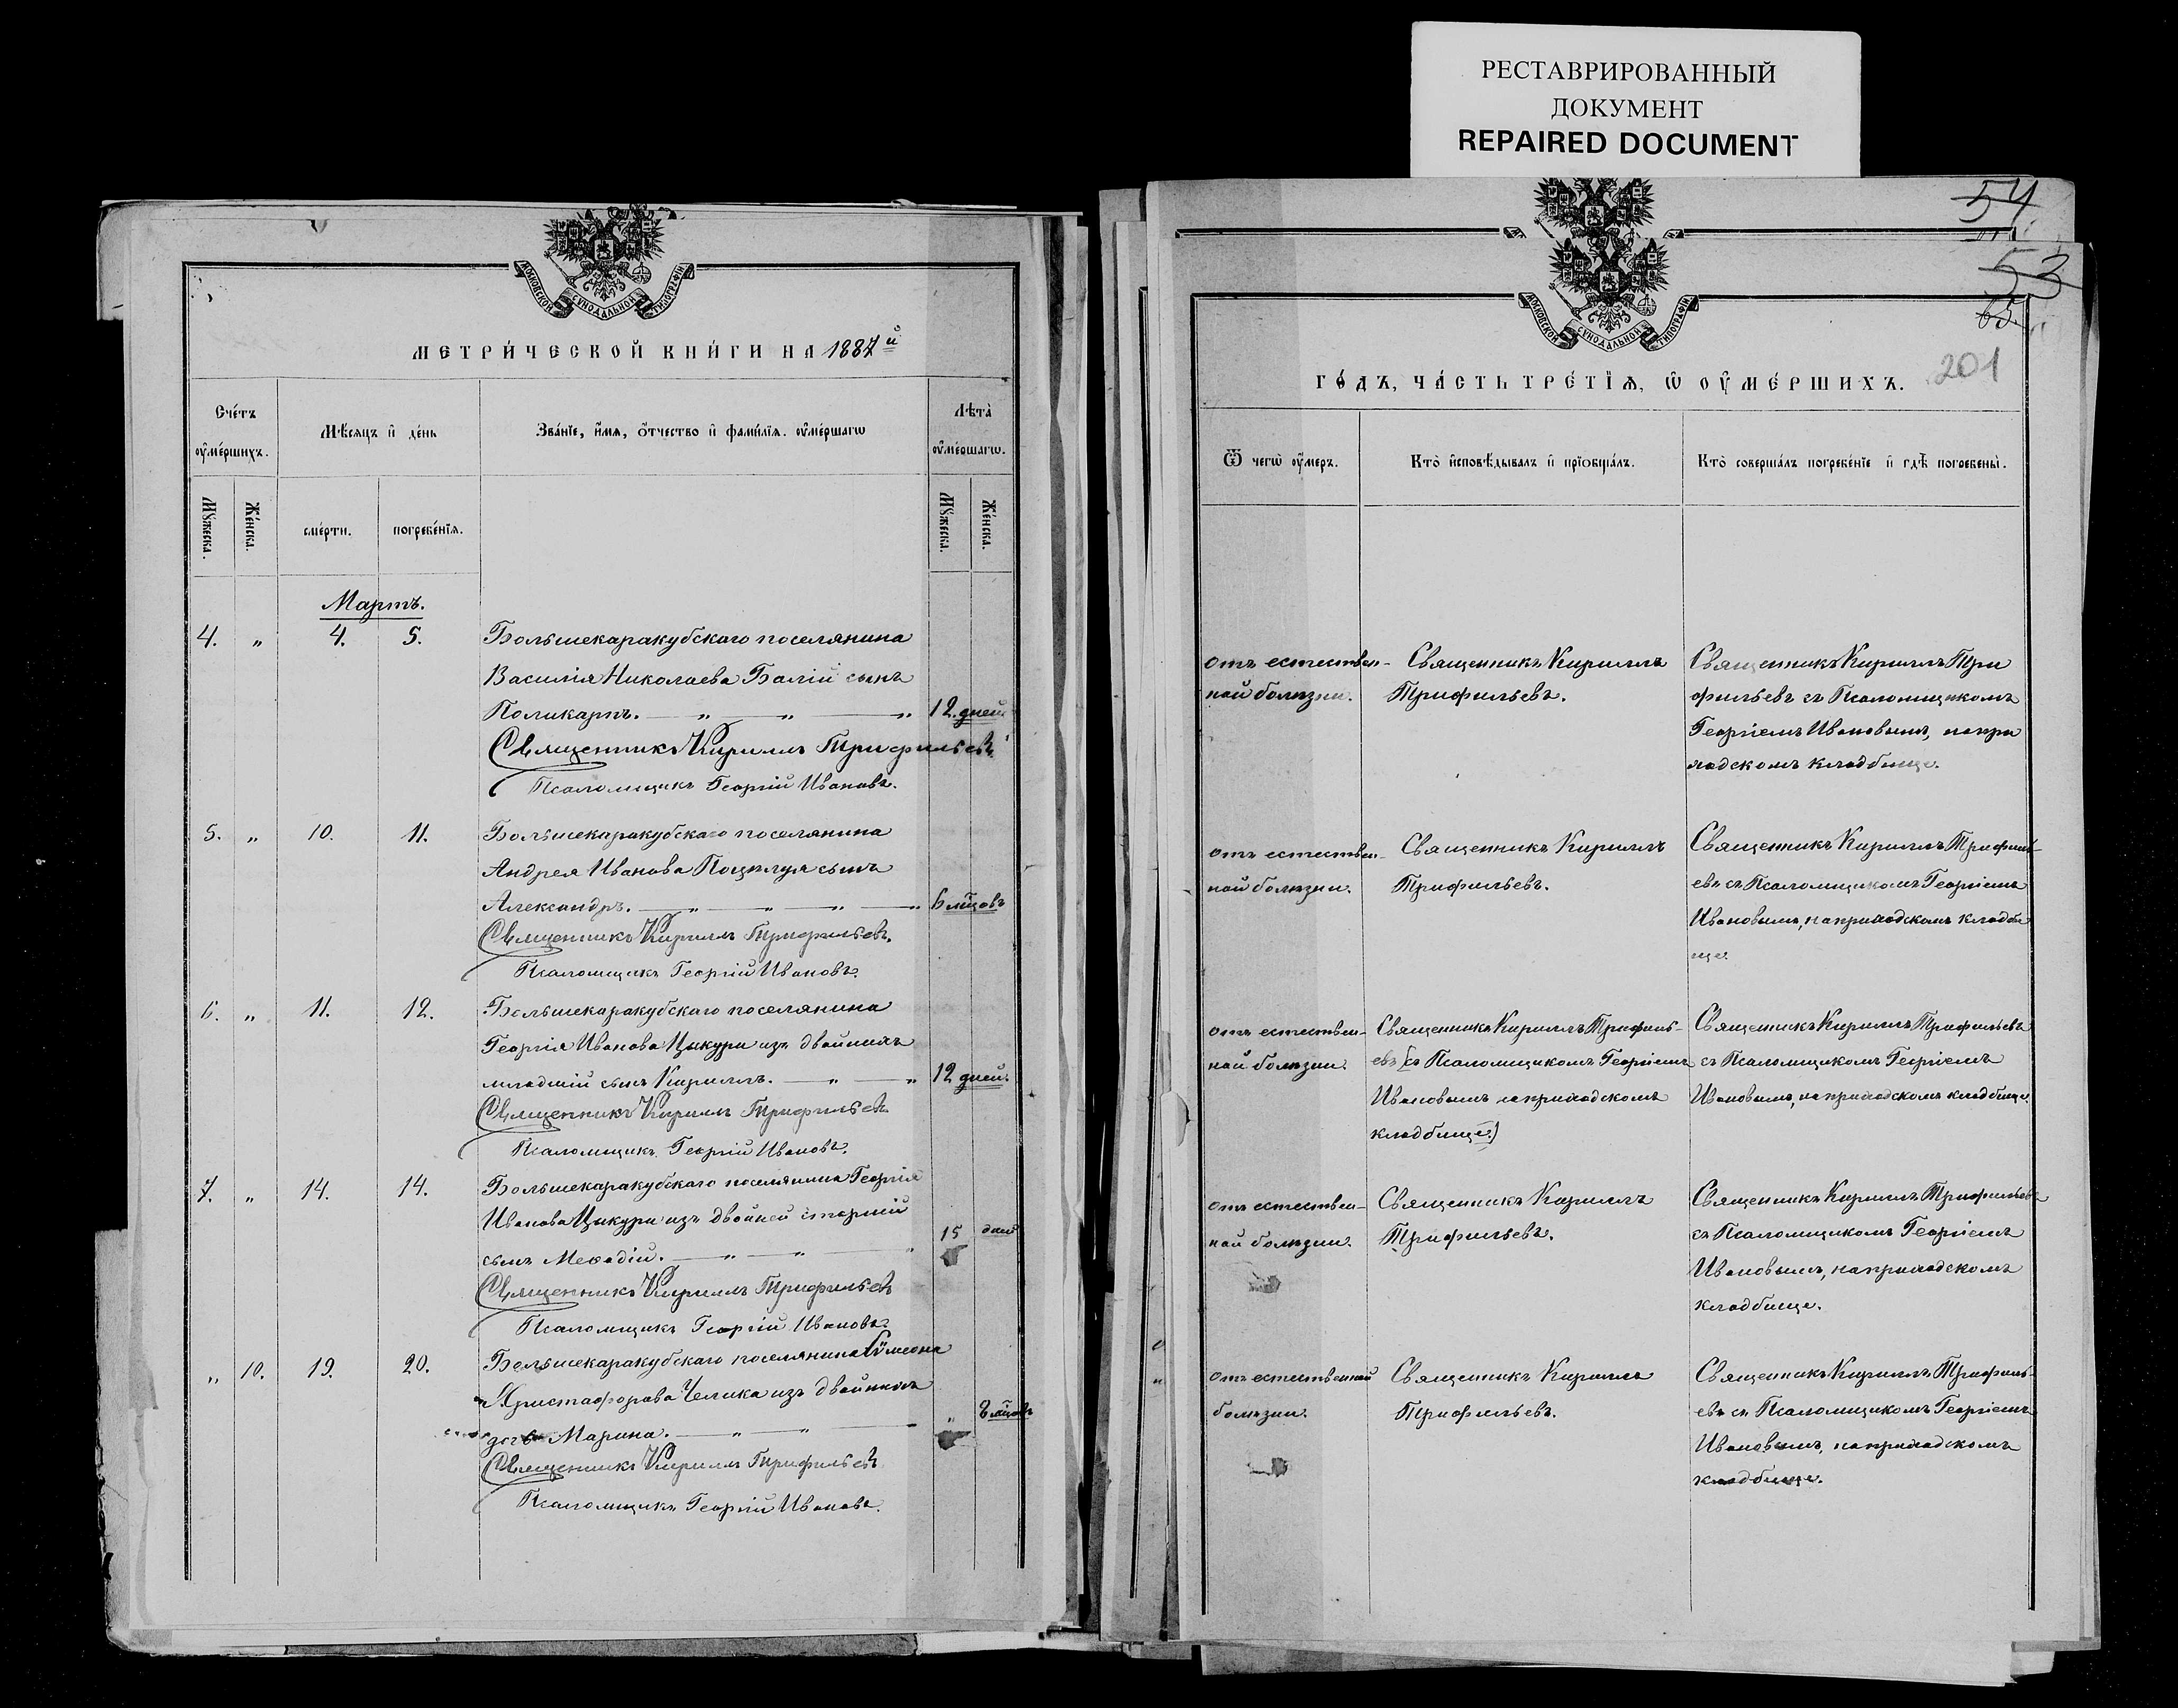 РЕСТАВРИРОВАННЫЙ
ДОКУМЕНТ
REPAIRED DOCUMENT
54
53
65.
201
МОСКОВСКОЙ СѴНОДАЛЬНОЙ ТИПОГРАФІИ
МЕТРИ́ЧЕСКОЙ КНИ́ГИ НА 1887й
Сче́тъ оу҆ме́ршихъ.
Мѣ́сяцъ и҆ де́нь
Зва́нїе, и҆́мя, ѻ҆́тчество и҆ фами́лїя. оу҆ме́ршагѡ
Лѣта̀ оу҆ме́ршагѡ.
Мꙋ́жеска.
Же́нска.
сме́рти.
погребе́нїя.
Мꙋ́жеска.
Же́нска.
Мартъ.
4. „ 4. 5. Большекаракубскаго поселянина
Василія Николаева Балій сынъ
Поликарпъ. — „ — „ — „ 12. дней
Священникъ Кириллъ Трифильевъ
Псаломщикъ Георгій Ивановъ.
5. „ 10. 11. Большекаракубскаго поселянина
Андрея Иванова Поцелуя сынъ
Александръ. — „ — „ — „ — „ 6 м̃цовъ
Священникъ Кириллъ Трифильевъ.
Псаломщикъ Георгій Ивановъ.
6. „ 11. 12. Большекаракубскаго поселянина
Георгія Иванова Цикури изъ двойникъ
младшій сынъ Кириллъ. — „ — „ 12 дней.
Священникъ Кириллъ Трифильевъ.
Псаломщикъ Георгій Ивановъ.
7. „ 14. 14. Большекаракубскаго поселянина Георгія
Иванова Цикури изъ двойней старшій
сынъ Меѳодій. — „ — „ — „ 15 дней
Священникъ Кириллъ Трифильевъ
Псаломщикъ Георгій Ивановъ.
„ 10. 19. 20. Большекаракубскаго поселянина Сѵмеона
Христофорова Челика изъ двойникъ
дочь Марина. — „ — „ — „ м̃цовъ
Священникъ Кириллъ Трифильевъ
Псаломщикъ Георгій Ивановъ.
МОСКОВСКОЙ СѴНОДАЛЬНОЙ ТИПОГРАФІИ
ГО́ДЪ, ЧА́СТЬ ТРЕ́ТЇЯ, Ѡ҆ ОУ҆МЕ́РШИХЪ.
Ѿ чегѡ̀ оу҆́меръ.
Кто̀ и҆сповѣ́дывалъ и҆ прїобща́лъ.
Кто̀ соверша́лъ погребе́нїе и҆ гдѣ̀ погребены̀.
отъ естествен-
ной болѣзни.
Священникъ Кириллъ
Трифильевъ.
Священникъ Кириллъ Три
фильевъ съ Псаломщикомъ
Георгіемъ Ивановымъ, на при
ходскомъ кладбище.
отъ естествен-
ной болѣзни.
Священникъ Кириллъ
Трифильевъ.
Священникъ Кириллъ Трифиль-
евъ съ Псаломщикомъ Георгіемъ
Ивановымъ, на приходскомъ кладби
ще.
отъ естествен-
ной болѣзни.
Священникъ Кириллъ Трифиль-
евъ (съ Псаломщикомъ Георгіемъ
Ивановымъ на приходскомъ
кладбище.)
Священникъ Кириллъ Трифильевъ
съ Псаломщикомъ Георгіемъ
Ивановымъ, на приходскомъ кладбище.
отъ естествен-
ной болѣзни.
Священникъ Кириллъ
Трифильевъ.
Священникъ Кириллъ Трифильевъ
съ Псаломщикомъ Георгіемъ
Ивановымъ, на приходскомъ
кладбище.
отъ естественной
болѣзни.
Священникъ Кириллъ
Трифильевъ.
Священникъ Кириллъ Трифиль-
евъ съ Псаломщикомъ Георгіемъ
Ивановымъ, на приходскомъ
кладбище.